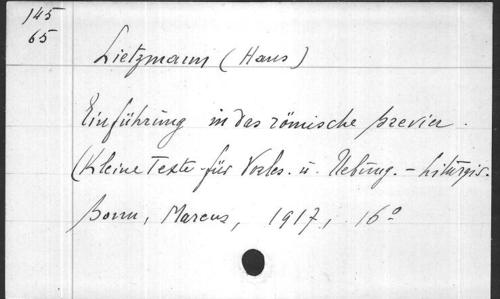 145
65
Lietzmann (Hans)
Einführung in das römische Brevier.
(Kleine Texte für Vorles. u. Uebung. - Liturgis.
Bonn, Marcus, 1917, 16°